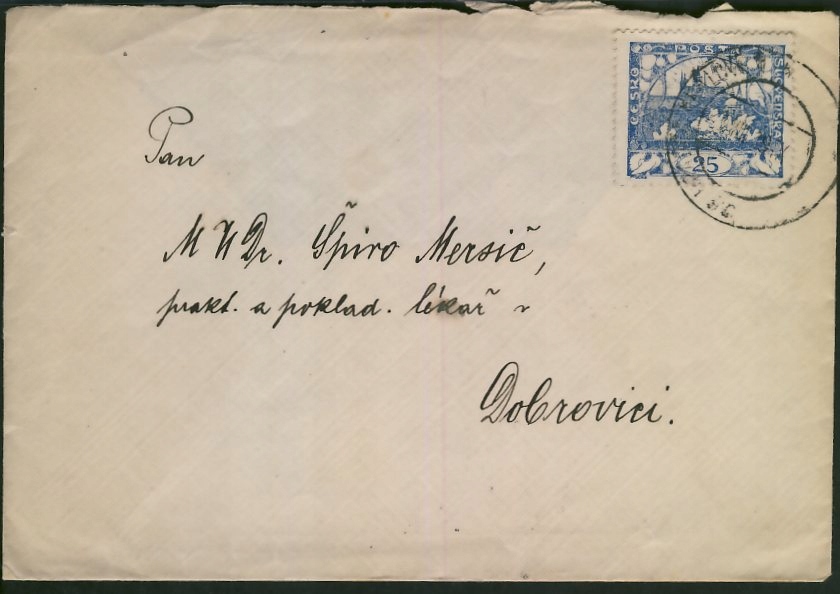 POŠTA
ČESKO
SLOVENSKÁ
25
Pan
MUDr. Špiro Mersič,
prakt. a poklad. lékař v
Dobrovici.